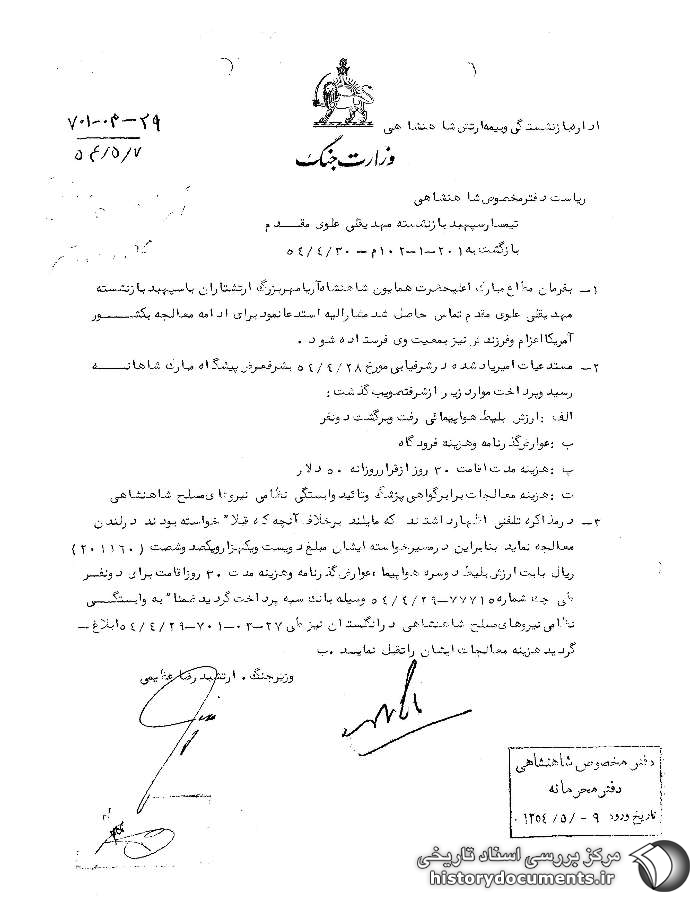 اداره بازنشستگی و بیمه ارتش شاهنشاهی
وزارت جنگ
۷۰۱-۰۳-۲۹
۵۴/۵/۷
ریاست دفتر مخصوص شاهنشاهی
تیمسار سپهبد بازنشسته مهدیقلی علوی مقدم
بازگشت به ۲۰۱-۱-۱۰۲م - ۵۴/۴/۳۰
۱- بفرمان مطاع مبارک اعلیحضرت همایون شاهنشاه آریامهر بزرگ ارتشتاران با سپهبد بازنشسته
مهدیقلی علوی مقدم تماس حاصل شد مشارالیه استدعا نمود برای ادامه معالجه بکشور
آمریکا اعزام و فرزندش نیز بمعیت وی فرستاده شود .
۲- مستدعیات امیر یاد شده در شرفیابی مورخ ۵۴/۴/۲۸ بشرفعرض پیشگاه مبارک شاهانه
رسید و پرداخت موارد زیر از شرف تصویب گذشت :
الف : ارزش بلیط هواپیمائی رفت و برگشت دونفر
ب : عوارض گذرنامه و هزینه فرودگاه
پ : هزینه مدت اقامت ۳۰ روز از قرار روزانه ۵۰ دلار
ت : هزینه معالجات برابر گواهی پزشک و تائید وابستگی نظامی نیروهای مسلح شاهنشاهی
۳- در مذاکره تلفنی اظهار داشتند که مایلند برخلاف آنچه که قبلا" خواسته بودند در لندن
معالجه نماید بنابراین در مسیر خواسته ایشان مبلغ دویست و یکهزار و یکصد و شصت (۲۰۱۱۶۰)
ریال بابت ارزش بلیط دوسره هواپیما ، عوارض گذرنامه و هزینه مدت ۳۰ روز اقامت برای دونفر
طی چک شماره ۷۷۷۱۵-۵۴/۴/۲۹ وسیله بانک سپه پرداخت گردید ضمنا" به وابستگی
نظامی نیروهای مسلح شاهنشاهی در انگلستان نیز طی ۲۷-۰۳-۷۰۱-۵۴/۴/۲۹ ابلاغ -
گردید هزینه معالجات ایشان را تقبل نمایند . ب
وزیر جنگ . ارتشبد رضا عظیمی
دفتر مخصوص شاهنشاهی
دفتر محرمانه
تاریخ ورود ۹ - /۵/ ۱۳۵۴ .
مرکز بررسی اسناد تاریخی
historydocuments.ir